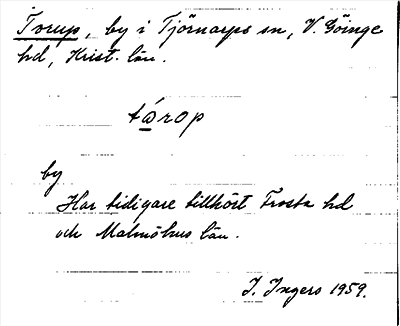 Torup, by i Tjörnarps sn, V. Göinge
hd, Krist. län.
tárop
by
Har tidigare tillhört Frosta hd
och Malmöhus län.
I. Ingers 1959.